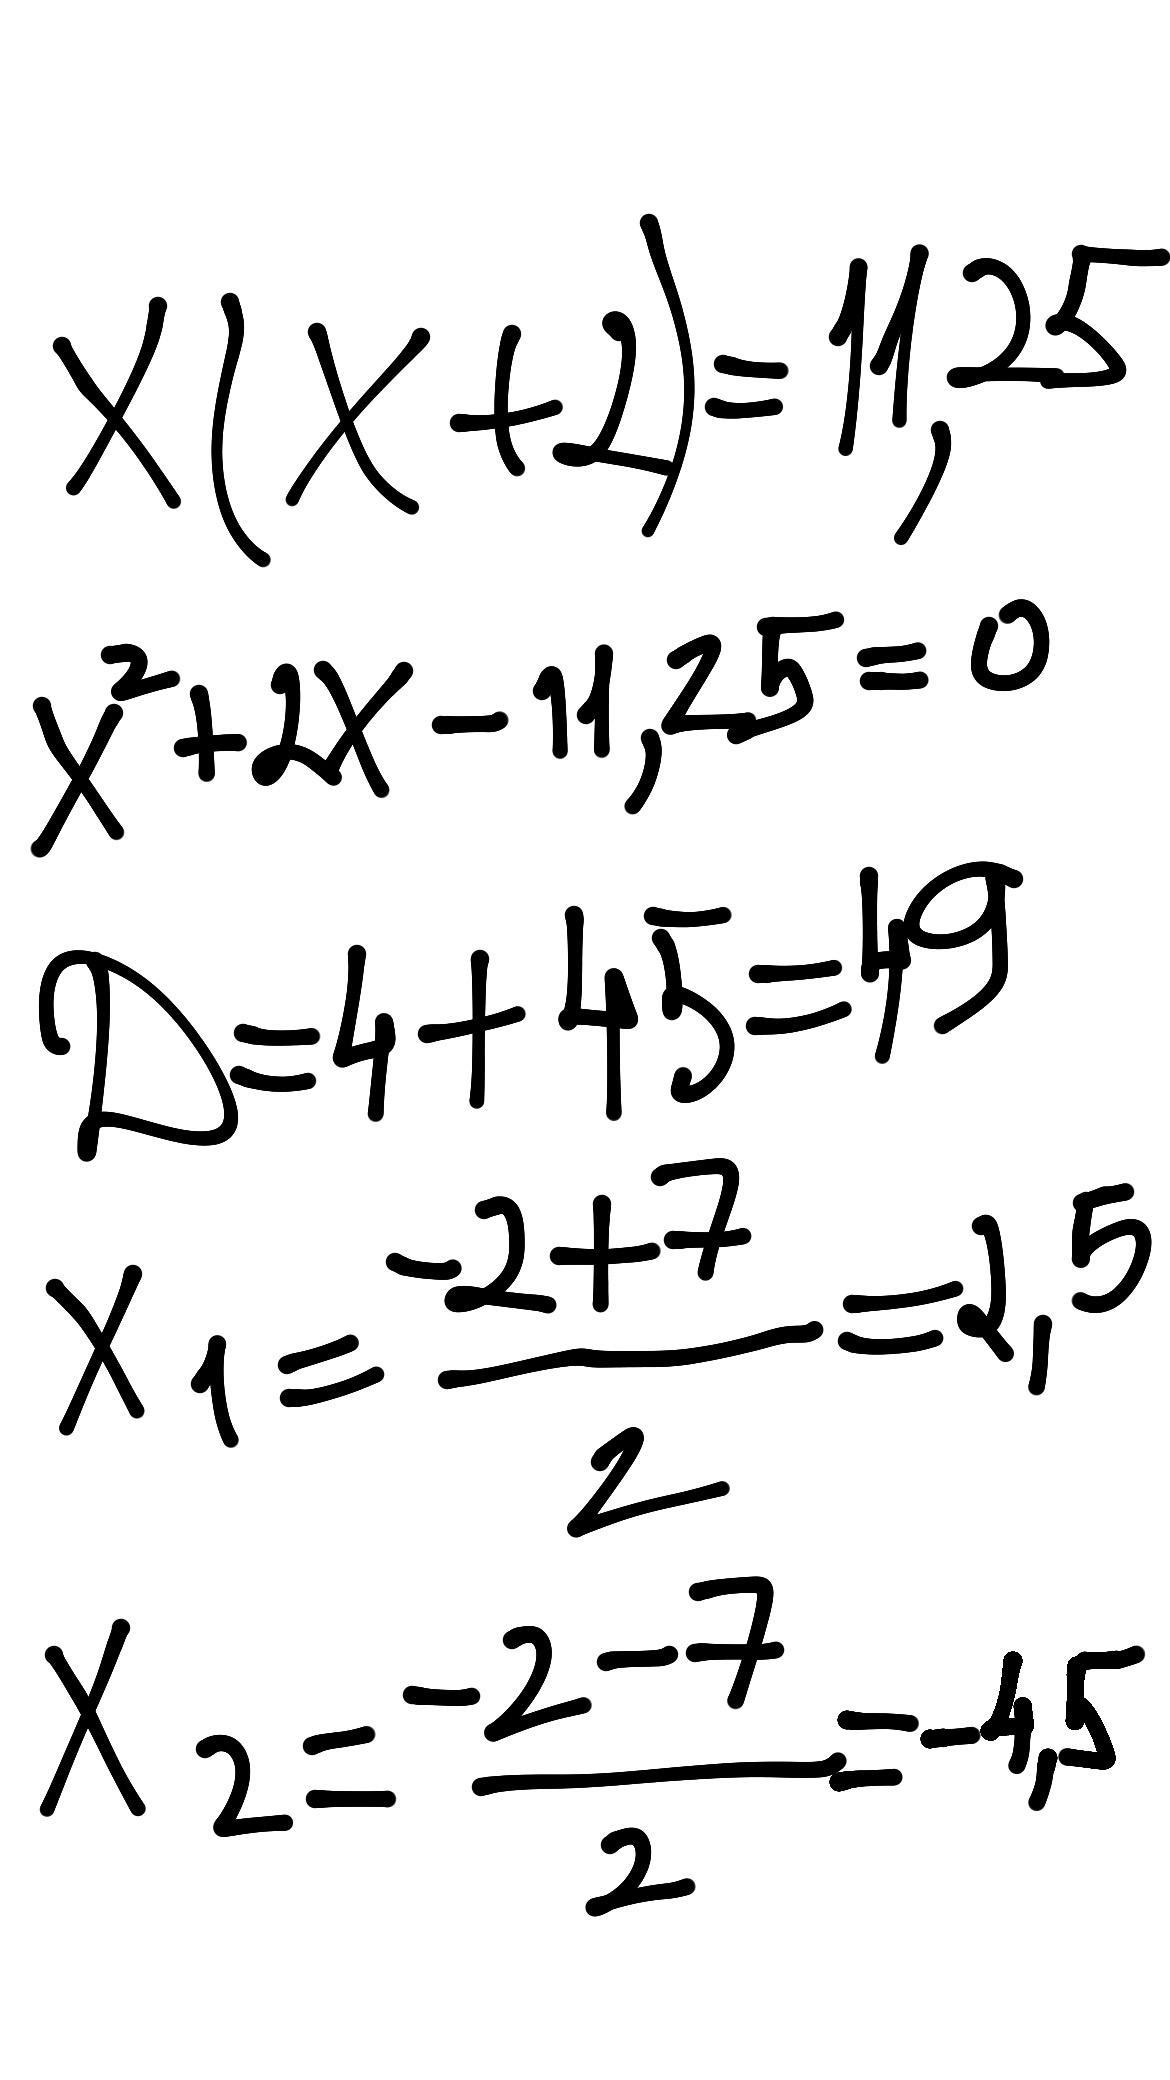 X(X+2)=11,25
X²+2X-11,25=0
D=4+45=49
X1=(-2+7)/2=2,5
X2=(-2-7)/2=-4,5